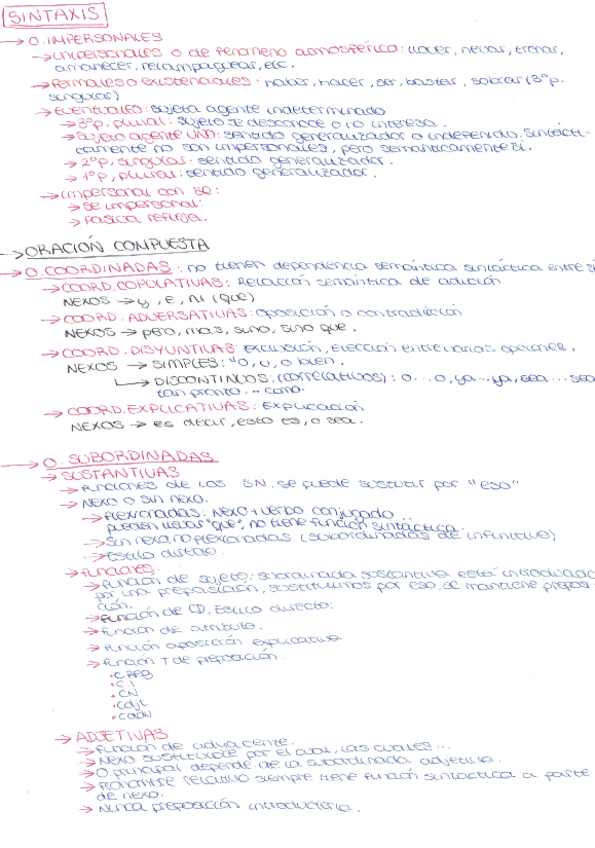 SINTAXIS
→ O. IMPERSONALES
→ Unipersonales o de fenómeno atmosférico: llover, nevar, tronar,
amanecer, relampaguear, etc.
→ Formales o existenciales: haber, hacer, ser, bastar, sobrar (3ºp.
singular)
→ Eventuales: sujeto agente indeterminado
→ 3ºp, plural: sujeto se desconoce o no interesa.
→ Sujeto agente UNO: sentido generalizador o indefinido. Sintácti-
camente no son impersonales, pero semánticamente sí.
→ 2ºp, singular: sentido generalizador.
→ 1ºp, plural: sentido generalizador.
→ Impersonal con se:
→ Se impersonal:
→ Pasiva refleja.
→ ORACIÓN COMPUESTA
→ O. COORDINADAS: no tienen dependencia semántica sintáctica entre sí
→ COORD. COPULATIVAS: Relación semántica de adición
NEXOS → y, e, ni (que)
→ COORD. ADVERSATIVAS: oposición o contradicción
NEXOS → pero, mas, sino, sino que.
→ COORD. DISYUNTIVAS: exclusión, elección entre varias opciones.
NEXOS → SIMPLES: "o, u, o bien.
→ DISCONTINUOS: (correlativos): o...o, ya...ya, sea... sea
tan pronto... como.
→ COORD. EXPLICATIVAS: Explicación
NEXOS → es decir, esto es, o sea.
→ O. SUBORDINADAS
→ SUSTANTIVAS
→ Funciones de los SN, se puede sustituir por "eso"
→ Nexo o sin nexo.
→ Flexionadas: Nexo + verbo conjugado
pueden llevar "que", no tiene función sintáctica.
→ Sin nexo, no flexionadas (subordinadas de infinitivo)
→ Estilo directo.
→ Funciones:
→ Función de sujeto: subordinada sustantiva está introducida
por una preposición, sustituimos por eso, se mantiene preposi-
ción.
→ Función de CD. Estilo directo:
→ Función de atributo.
→ Función aposición explicativa
→ Función T de preposición.
• CRég
• C.I
• CN
• CAdjt
• CAdv
→ ADJETIVAS
→ Función de adyacente.
→ Nexo sustituible por el cual, las cuales...
→ O. principal depende de la subordinada adjetiva.
→ Pronombre relativo siempre tiene función sintáctica a parte
de nexo.
→ Nunca preposición introductoria.